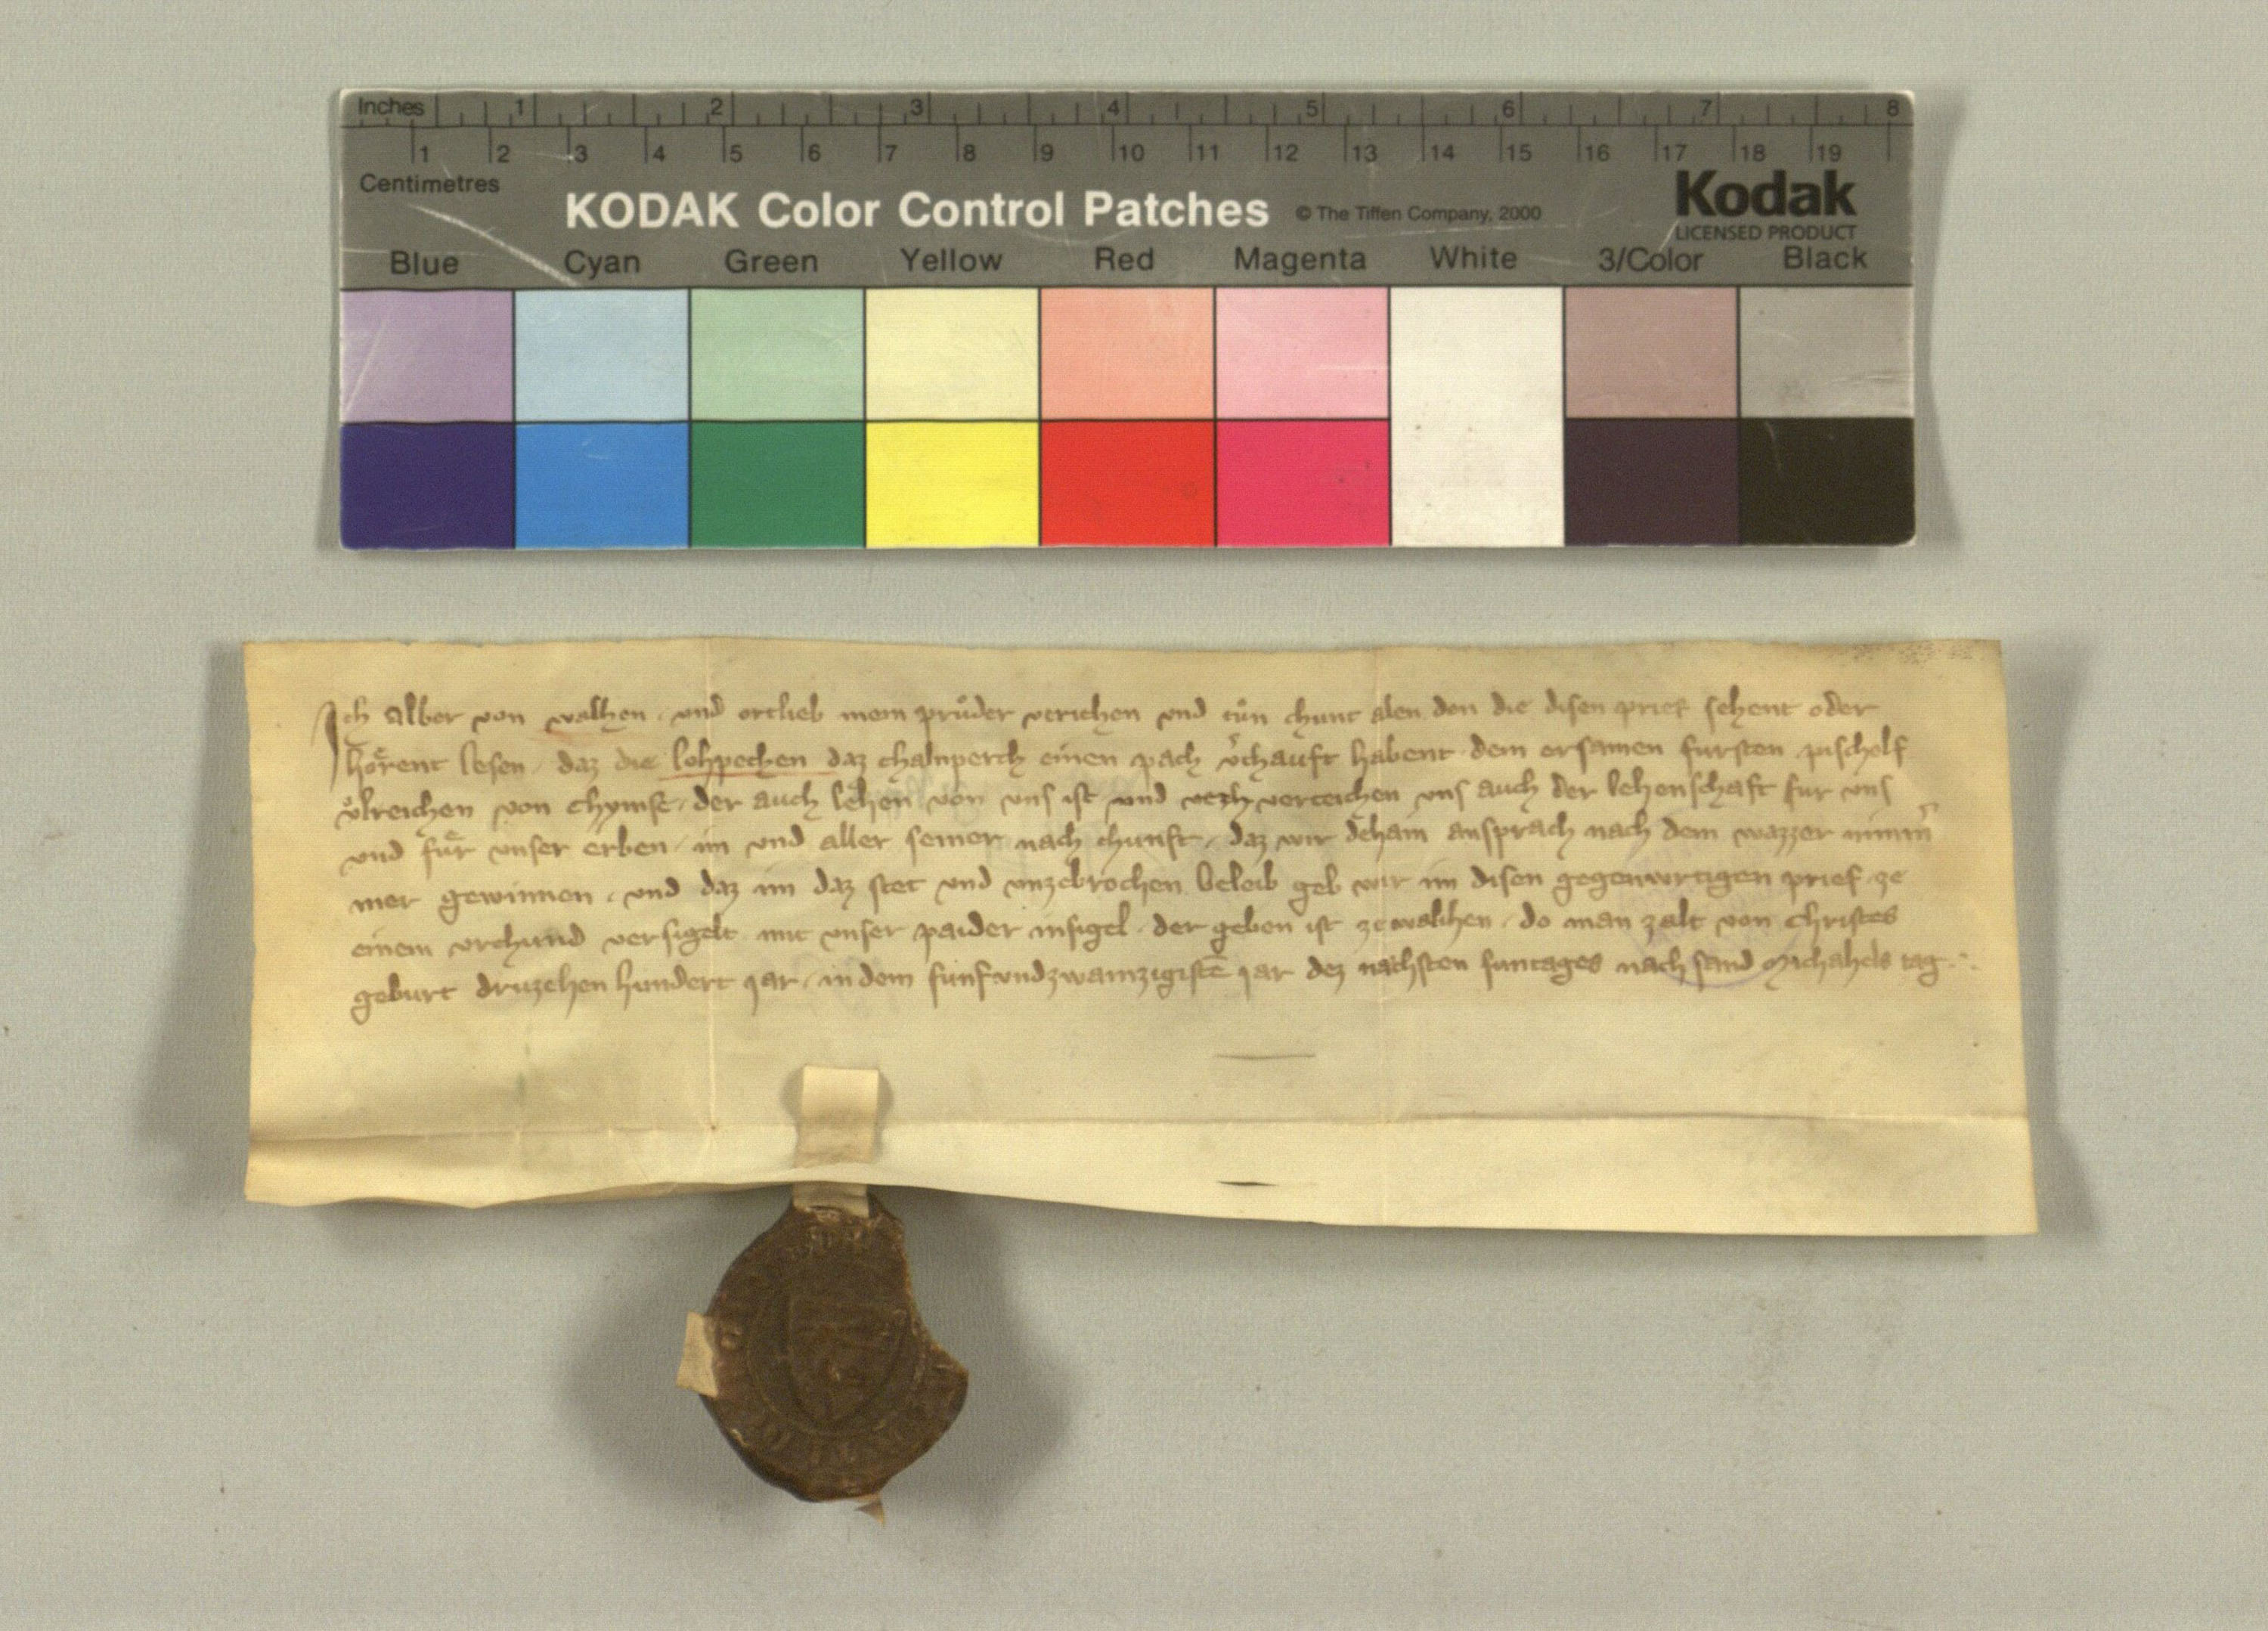 Inches 1 2 3 4 5 6 7 8
1 2 3 4 5 6 7 8 9 10 11 12 13 14 15 16 17 18 19
Centimetres
KODAK Color Control Patches © The Tiffen Company, 2000 Kodak
LICENSED PRODUCT
Blue Cyan Green Yellow Red Magenta White 3/Color Black
Ich Alber von walhen · und ortlieb mein pruͦder veriehen und tuͦn chunt alen den die disen prief sehent oder
hoͤrent lesen · daz die lohpechen daz chalnperch einen pach v̓chauft habent · dem ersamen fursten pischolf
vͦlreichen von chymse · der auch lehen von uns ist und verzeichen uns auch der lehenschaft fur uns
und fuͤr unser erben · im und aller seiner nach chunft · daz wir dehain ansprach nach dem wazzer nimm̓
mer gewinnen · und daz im daz stet und unzebrochen beleib geb wir im disen gegenwrtigen prief ze
einem vrchund versigelt mit unser paider insigel · der geben ist ze walhen · do man zalt von Christes
geburt druzehen hundert iar · in dem funfundzwainzigistē iar dez nachsten suntages nach sand Michahels tag ·:·